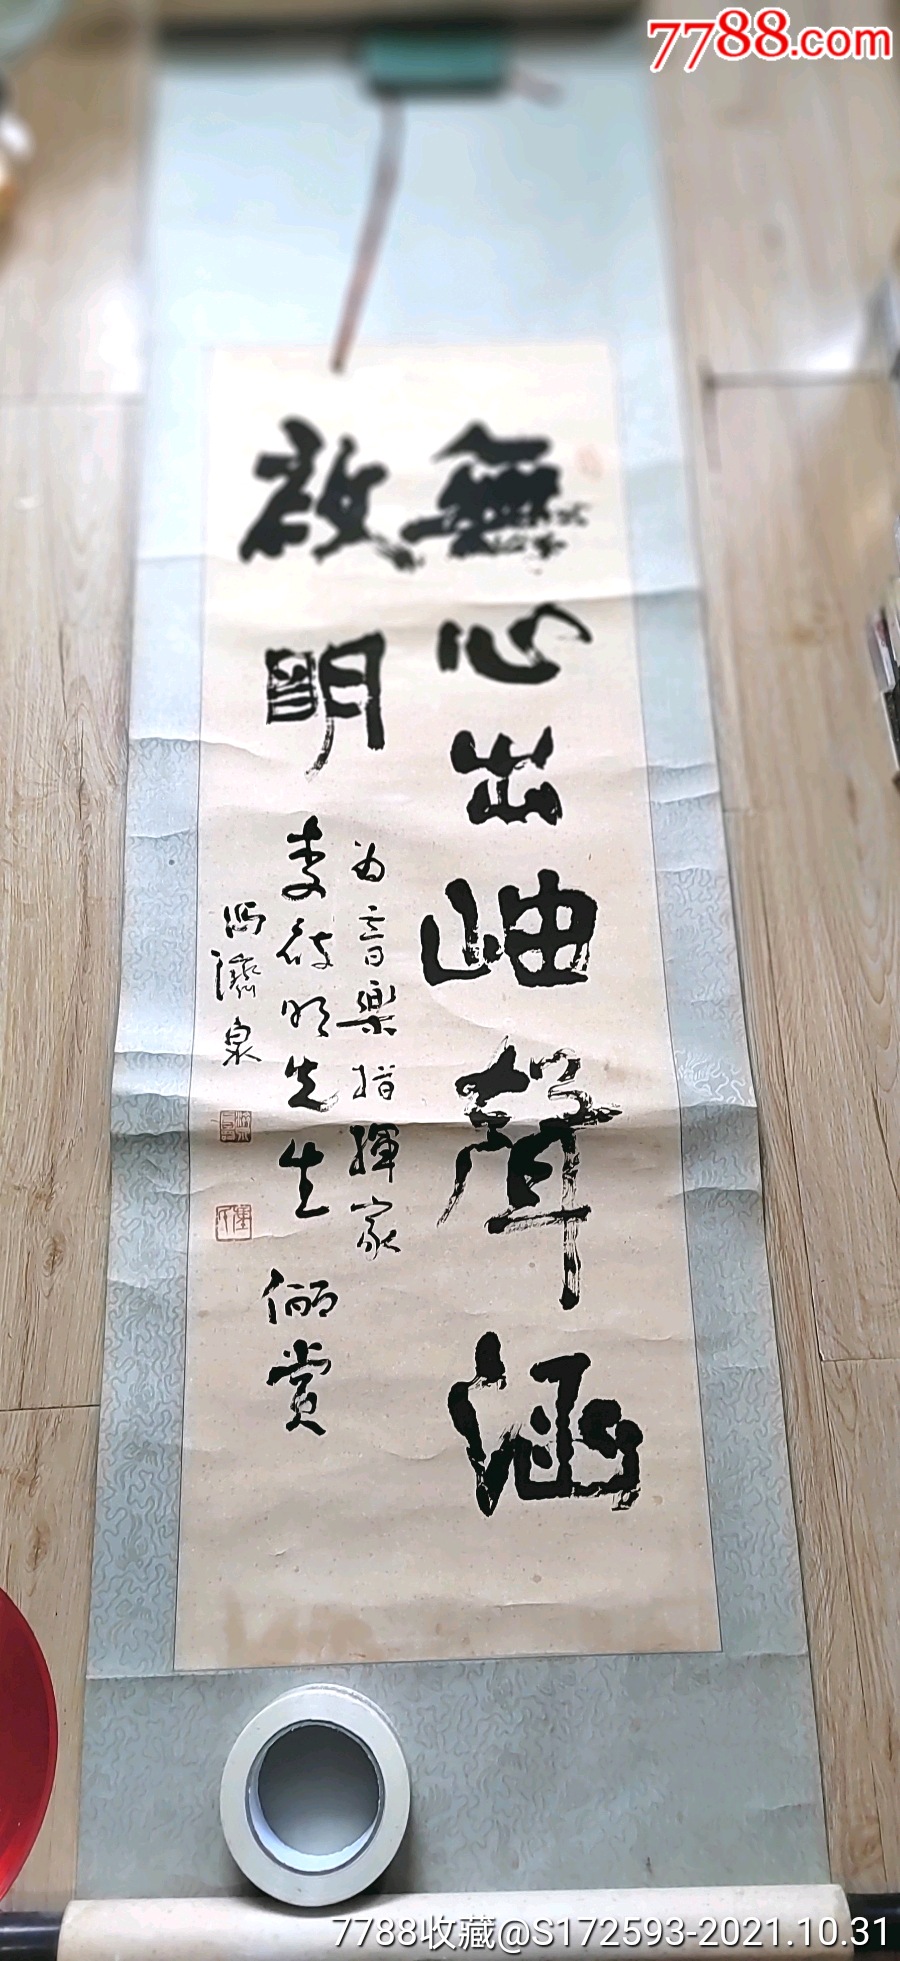 7788.com
無心出岫聲涵
啟明
为音樂指揮家
李啟明先生俪赏
馮濟泉
7788收藏@S172593-2021.10.31